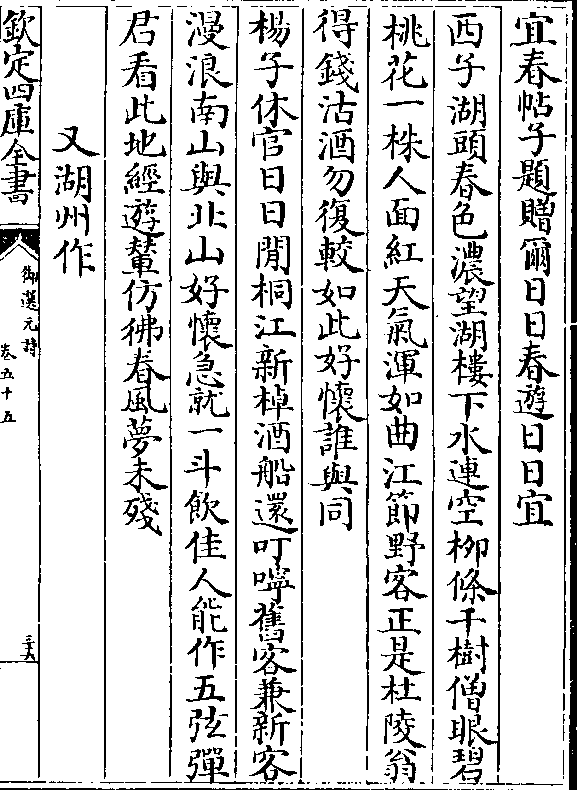 宜春帖子題贈爾日日春遊日日宜
西子湖頭春色濃望湖樓下水連空柳條千樹僧眼碧
桃花一株人面紅天氣渾如曲江節野客正是杜陵翁
得錢沽酒勿復較如此好懷誰與同
楊子休官日日閒桐江新棹酒船還叮嚀舊客兼新客
漫浪南山與北山好懷急就一斗飲佳人能作五弦彈
君看此地經遊輦仿彿春風夢未殘
又湖州作
欽定四庫全書
御選元詩
卷五十五
三六